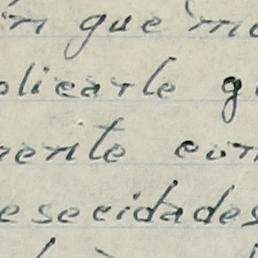 in que mo
plicarle q
mente con
esecidades